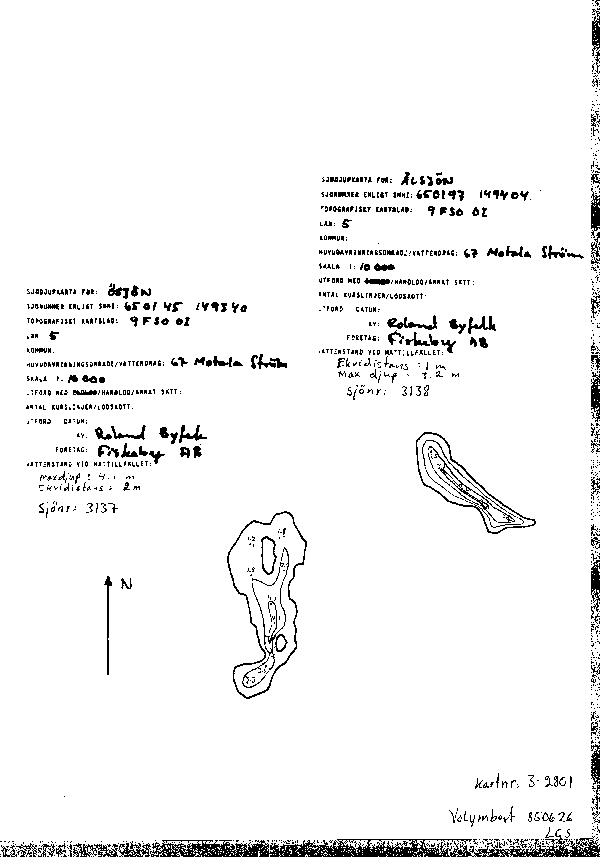 SJÖDJUPKARTA FÖR: ÅLSJÖN
SJÖNUMMER ENLIGT SMHI: 650197 149404
TOPOGRAFISKT KARTBLAD: 9 F SO 0I
LÄN: 5
KOMMUN:
HUVUDAVRINNINGSOMRÅDE/VATTENDRAG: 67 Motala Ström
SKALA 1: 10 000
UTFÖRD MED /HANDLOD/ANNAT SÄTT:
ANTAL KURSLINJER/LODSKOTT:
UTFÖRD DATUM:
AV: Roland Byfalk
FÖRETAG: Fiskeby AB
VATTENSTÅND VID MÄTTILLFÄLLET:
Ekvidistans : 1 m
Max djup : 3.2 m
Sjönr: 3138
SJÖDJUPKARTA FÖR: ÖSJÖN
SJÖNUMMER ENLIGT SMHI: 650145 149340
TOPOGRAFISKT KARTBLAD: 9 F SO 0I
LÄN 5
KOMMUN:
HUVUDAVRINNINGSOMRÅDE/VATTENDRAG: 67 Motala Ström
SKALA 1: 10 000
UTFÖRD MED /HANDLOD/ANNAT SÄTT:
ANTAL KURSLINJER/LODSKOTT:
UTFÖRD DATUM:
AV: Roland Byfalk
FÖRETAG: Fiskeby AB
VATTENSTÅND VID MÄTTILLFÄLLET:
Maxdjup : 4.1 m
Ekvidistans : 2 m
Sjönr: 3137
N
Kartnr. 3-2801
Volymbert 850626
LGS